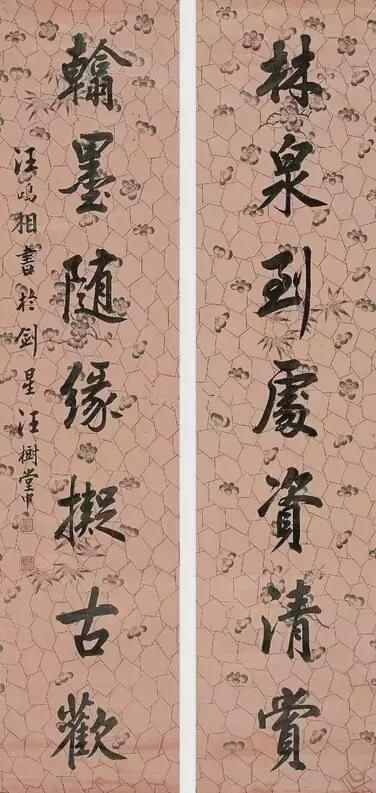 林泉到處資清賞
翰墨随缘擬古歡
汪鳴相書於劍星汪樹堂中